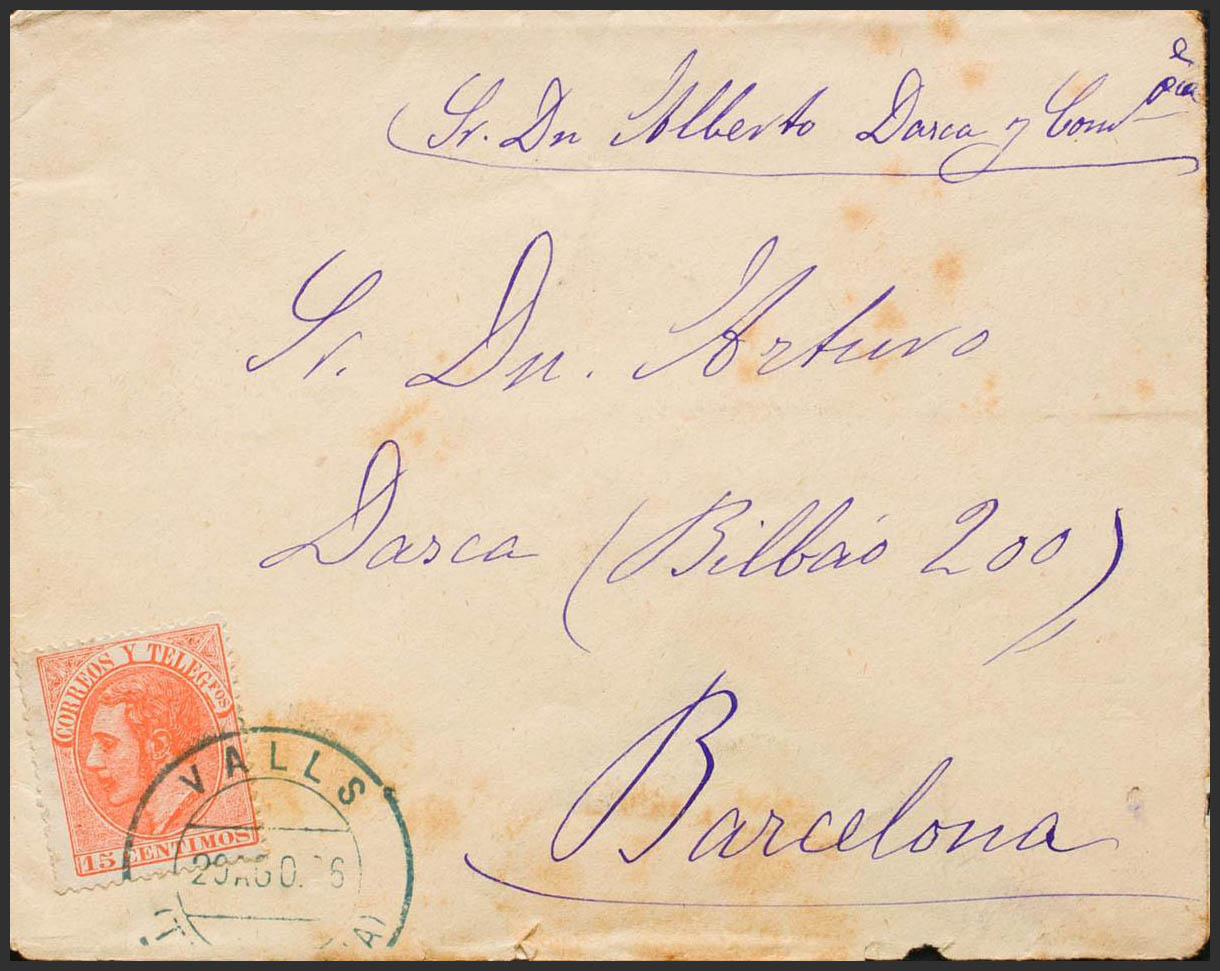 Sr. Dn Alberto Dasca y Comp
Sr. Dn. Arturo
Dasca (Bilbáo 200)
Barcelona
CORREOS Y TELEGFOS
15 CENTIMOS
VALLS
AGO.